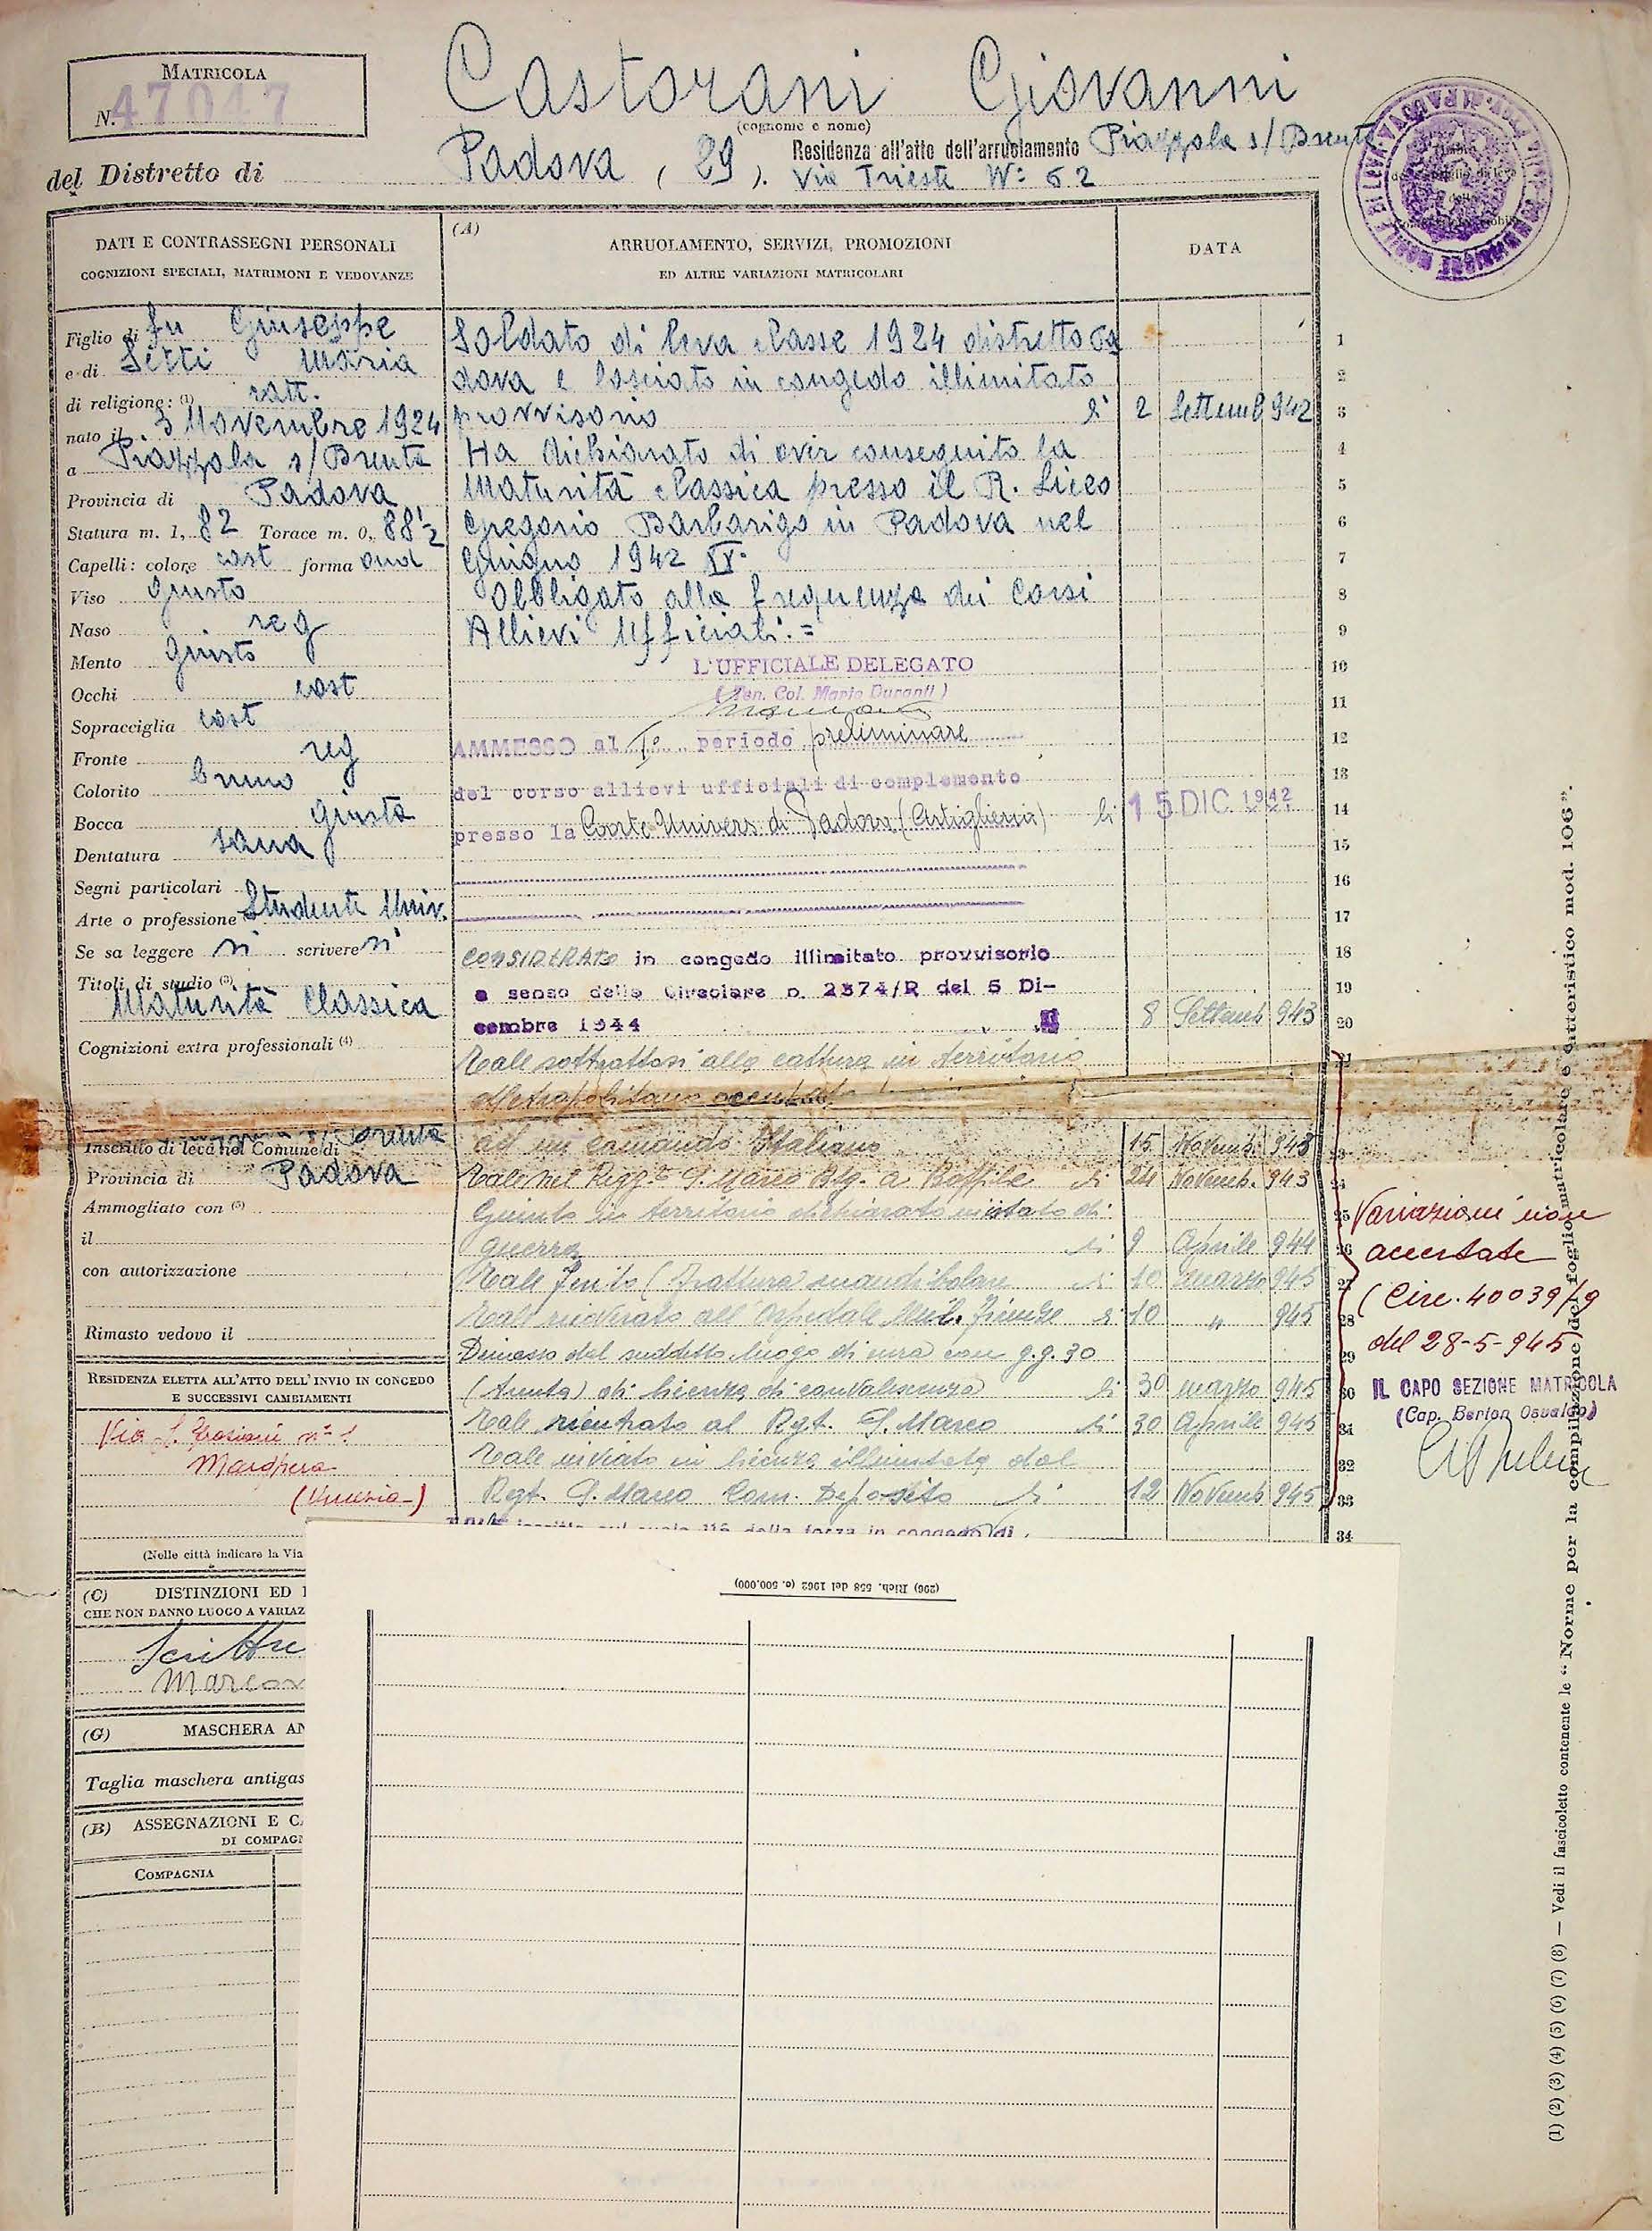 MATRICOLA
N. 47047
Castorani Giovanni
(cognome e nome)
del Distretto di Padova (29). Residenza all'atto dell'arruolamento Piazzola s/Brenta
Via Trieste N° 62
DATI E CONTRASSEGNI PERSONALI
COGNIZIONI SPECIALI, MATRIMONI E VEDOVANZE
Figlio di fu Giuseppe
e di Setti Maria
di religione: (1) catt.
nato il 3 Novembre 1924
a Piazzola s/Brenta
Provincia di Padova
Statura m. 1, 82 Torace m. 0, 88 1/2
Capelli: colore cast forma ond
Viso giusto
Naso reg
Mento giusto
Occhi cast
Sopracciglia cast
Fronte reg
Colorito bruno
Bocca giusta
Dentatura sana
Segni particolari
Arte o professione Studente Univ.
Se sa leggere si scrivere si
Titoli di studio (3)
Maturità Classica
Cognizioni extra professionali (4)
Inscritto di leva nel Comune di Brenta
Provincia di Padova
Ammogliato con (5)
il
con autorizzazione
Rimasto vedovo il
RESIDENZA ELETTA ALL'ATTO DELL'INVIO IN CONGEDO
E SUCCESSIVI CAMBIAMENTI
Via
Marghera
(Venezia-)
(Nelle città indicare la Via
(C) DISTINZIONI ED
CHE NON DANNO LUOGO A VARIAZ
(G) MASCHERA AN
Taglia maschera antigas
(B) ASSEGNAZIONI E CA
DI COMPAGN
COMPAGNIA
(A)
ARRUOLAMENTO, SERVIZI, PROMOZIONI
ED ALTRE VARIAZIONI MATRICOLARI
DATA
Soldato di leva classe 1924 distretto Pa 1
dova e lasciato in congedo illimitato 2
provvisorio li 2 Settemb 942 3
Ha dichiarato di aver conseguito la 4
Maturità classica presso il R. Liceo 5
Gregorio Barbarigo in Padova nel 6
Giugno 1942 7
Obbligato alla frequenza dei Corsi 8
Allievi Ufficiali.= 9
L'UFFICIALE DELEGATO 10
(Ten. Col. Mario Duranti) 11
AMMESSO al I° periodo preliminare 12
del corso allievi ufficiali di complemento 13
presso la Coorte Univers. di Padova (Artiglieria) li 15 DIC. 1942 14
15
16
17
CONSIDERATO in congedo illimitato provvisorio 18
a senso della Circolare n. 2374/R del 5 Di- 19
cembre 1944 8 Settemb 943 20
Tale sottrattosi alla cattura in territorio 21
Metropolitano
ad un comando Italiano 15 Novemb. 943
Tale nel Regg.to S. Marco Btg. li 24 Novemb. 943 24
Giunto in territorio dichiarato in istato di 25
guerra li 9 Aprile 944 26
Tale ferito (frattura mandibolare li 10 marzo 945 27
Tale ricoverato all'Ospedale Mil. Firenze li 10 " 945 28
Dimesso dal suddetto luogo di cura con g.g. 30 29
(trenta) di licenza di convalescenza li 30 marzo 945 30
Tale rientrato al Rgt. S. Marco li 30 Aprile 945 31
Tale inviato in licenza illimitata dal 32
Rgt. S. Marco Com. Deposito li 12 Novemb 945 33
34
Variazioni non
accertate
(Circ. 40039/9
del 28-5-945)
IL CAPO SEZIONE MATRICOLA
(Cap. Berton Osvaldo)
(296) Rich. 558 del 1962 (c. 500.000)
(1) (2) (3) (4) (5) (6) (7) (8) — Vedi il fascicoletto contenente le "Norme per la compilazione del foglio matricolare e caratteristico mod. 106".